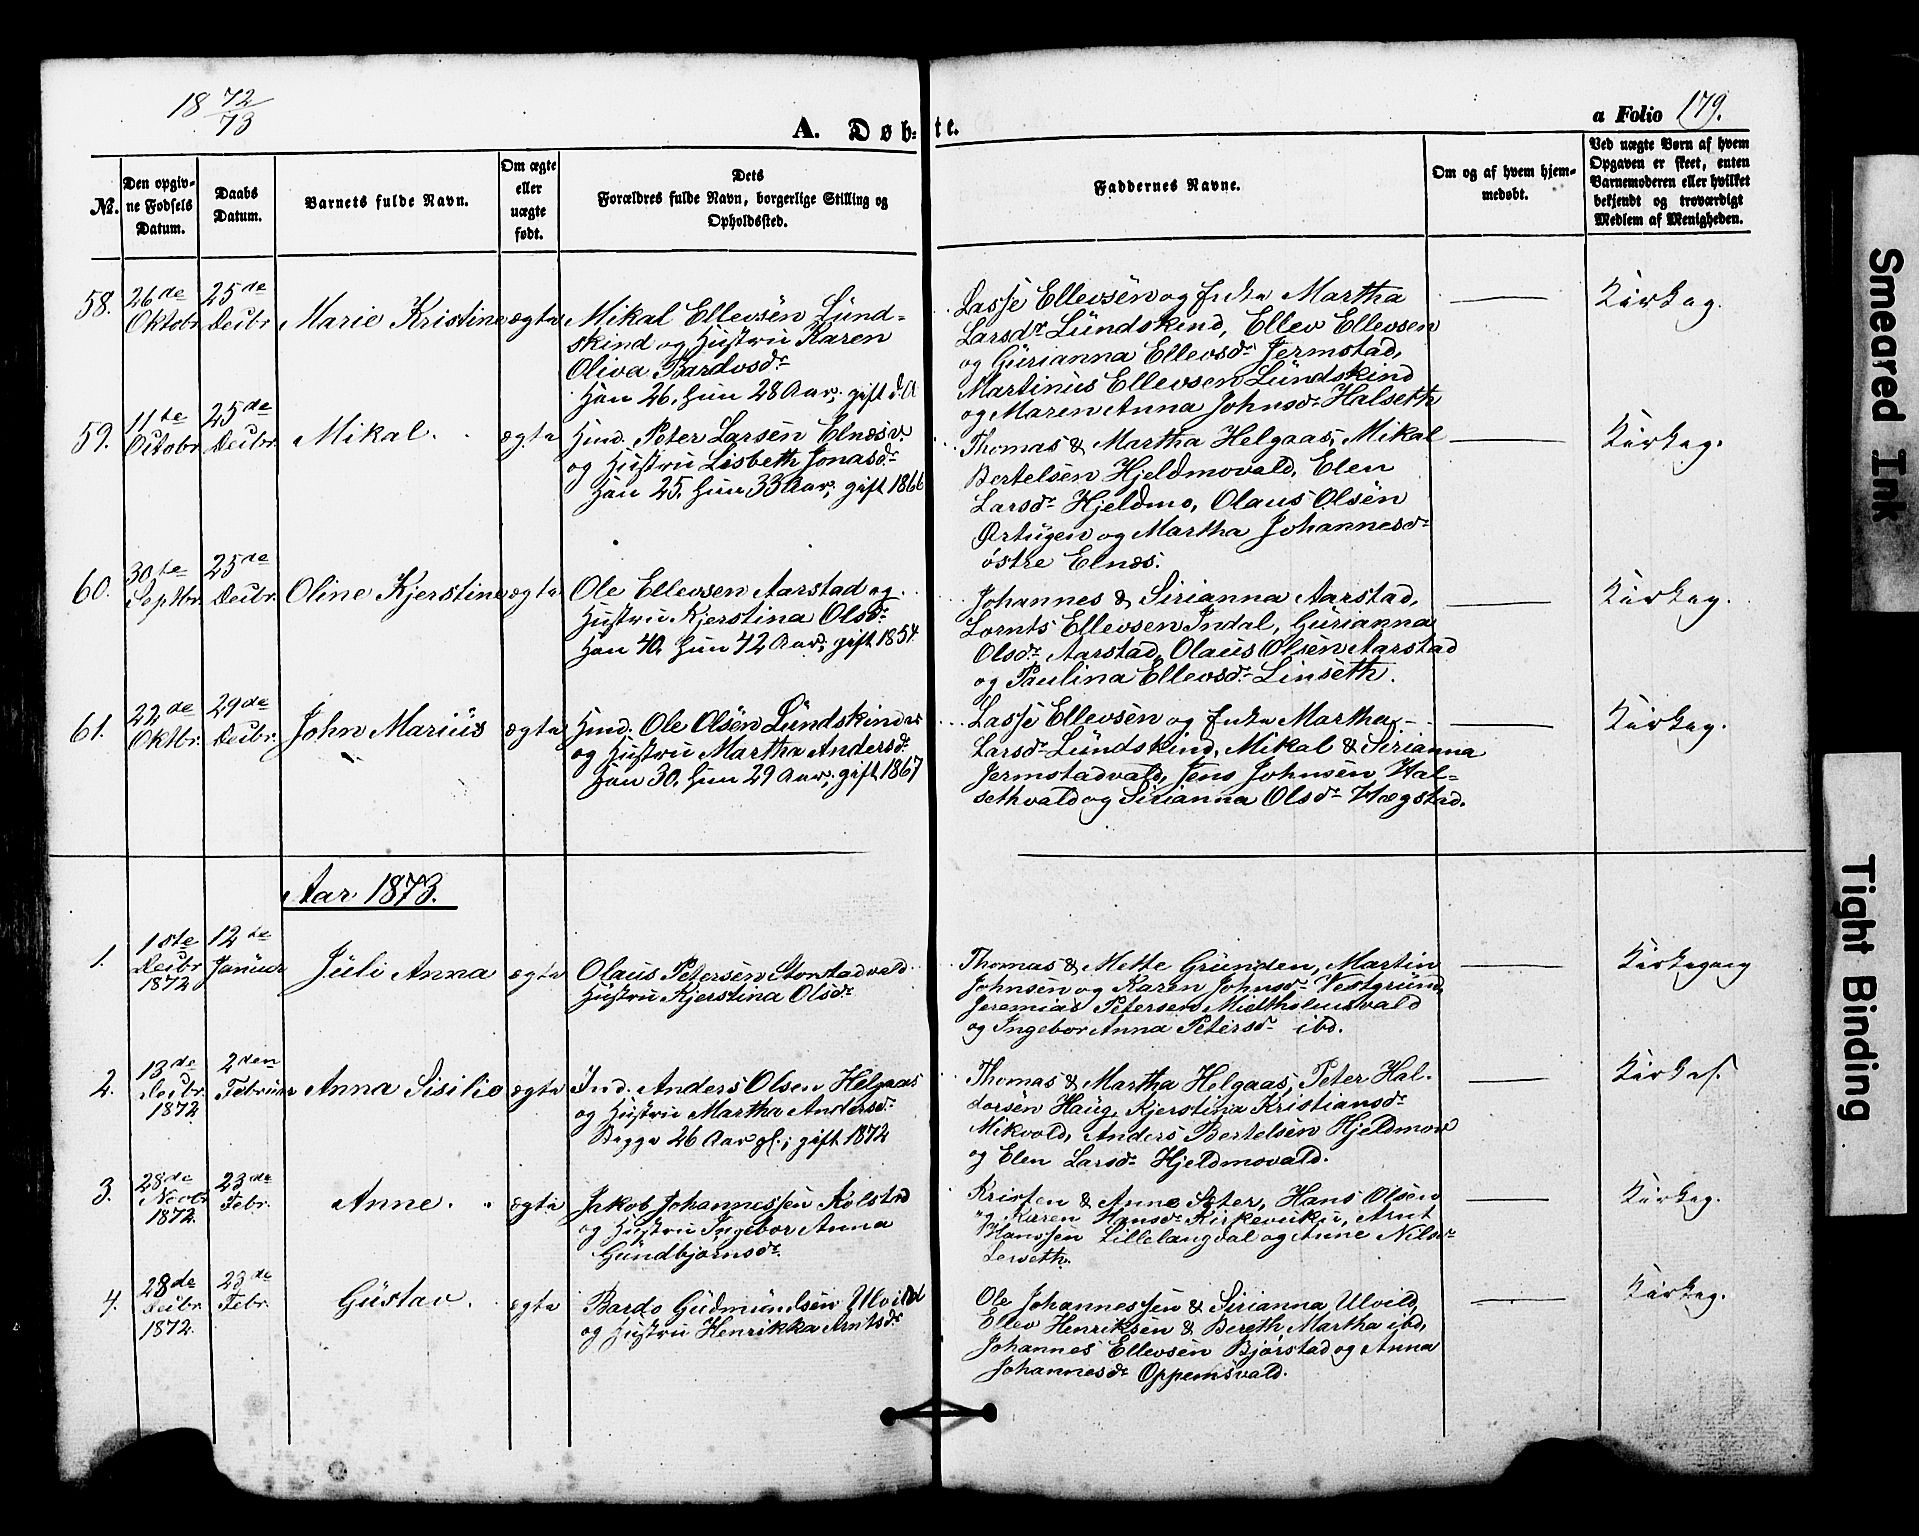 18 72/73
A. Døb-te.
a Folio 179.
№.
Den opgiv-
ne Fødsels
Datum.
Daabs
Datum.
Barnets fulde Navn.
Om ægte
eller
uægte
født.
Dets
Forældres fulde Navn, borgerlige Stilling og
Opholdssted.
Faddernes Navne.
Om og af hvem hjem-
medøbt.
Ved uægte Børn af hvem
Opgaven er skeet, enten
Barnemoderen eller hvilket
bekjendt og troværdigt
Medlem af Menigheden.
58.
26de
Oktobr
25de
Decbr
Marie Kristine
ægte
Mikal Ellevsen Lund-
skind og Hustru Karen
Oliva Bardosdr
Han 26, hun 28 Aar, gift d. A
Lasse Ellevsen og Enke Martha
Larsdr Lundskind, Ellev Ellevsen
og Gurianna Ellevsdr Jermstad,
Martinus Ellevsen Lundskind
og Maren Anna Johnsdr Halseth
Kirkeg.
59.
11te
Octobr
25de
Decbr.
Mikal.
ægte
Hmd. Peter Larsen Elnæsv.
og Hustru Lisbeth Jonasdr
Han 25, hun 33 Aar, gift 1866
Thomas & Martha Helgaas, Mikal
Bertelsen Hjeldmovald, Elen
Larsdr Hjeldmo, Olaus Olsen
Ørtugen og Martha Johannesdr
østre Elnæs.
Kirkeg.
60.
30te
Septbr.
25de
Decbr.
Oline Kjerstine
ægte
Ole Ellevsen Aarstad og
Hustru Kjerstina Olsdr
Han 40, hun 42 Aar, gift 1854
Johannes & Sirianna Aarstad,
Lornts Ellevsen Indal, Gurianna
Olsdr Aarstad, Olaus Olsen Aarstad
og Paulina Ellevsdr Linseth.
Kirkeg.
61.
22de
Oktbr.
29de
Decbr.
John Marius
ægte
Hmd. Ole Olsen Lundskindv
og Hustru Martha Andersdr
Han 30, hun 29 Aar, gift 1867
Lasse Ellevsen og Enke Martha
Larsdr Lundskind, Mikal & Sirianna
Jermstadvald, Jens Johnsen Hal-
sethvald og Sirianna Olsdr Hægstad.
Kirkeg.
Aar 1873.
1.
18te
Decbr
1872
12te
Januar
Juli Anna
ægte
Olaus Petersen Stontadvald
Hustru Kjerstina Olsdr
Thomas & Mette Grunden, Martin
Johnsen og Karen Johnsdr Vestgrund,
Jeremias Petersen Midtholmsvald
og Ingebor Anna Petersdr ibd.
Kirkegang
2.
13de
Decbr
1872
2den
Februar
Anna Sisilie
ægte
Ind. Anders Olsen Helgaas
og Hustru Martha Andersdr
Begge 26 Aar gl.; gift 1872
Thomas & Martha Helgaas, Peter Hal-
dorsen Haug, Kjerstina Kristiansdr
Mikvold, Anders Bertelsen Hjeldmov
og Elen Larsdr Hjeldmovald.
3.
28de
Novbr
1872.
23de
Febr.
Anne.
ægte
Jakob Johannessen Kolstad
og Hustru Ingebor Anna
Gundbjørnsdr
Kristen & Anne Sæter, Hans Olsen
og Karen Hansdr Kirkevuku, Arnt
Hanssen Lillelangdal og Anne Nilsdr
Levseth.
Kirkeg.
4.
28de
Decbr
1872.
23de
Febr.
Gustav.
ægte
Bardo Gudmundsen Ulvild
og Hustru Henrikka Arntsdr
Ole Johannessen & Sirianna Ulvild,
Ellev Henriksen & Bereth Martha ibd,
Johannes Ellevsen Bjørstad og Anna
Johannesdr Oppemsvald.
Kirkeg.
Smeared Ink
Tight Binding